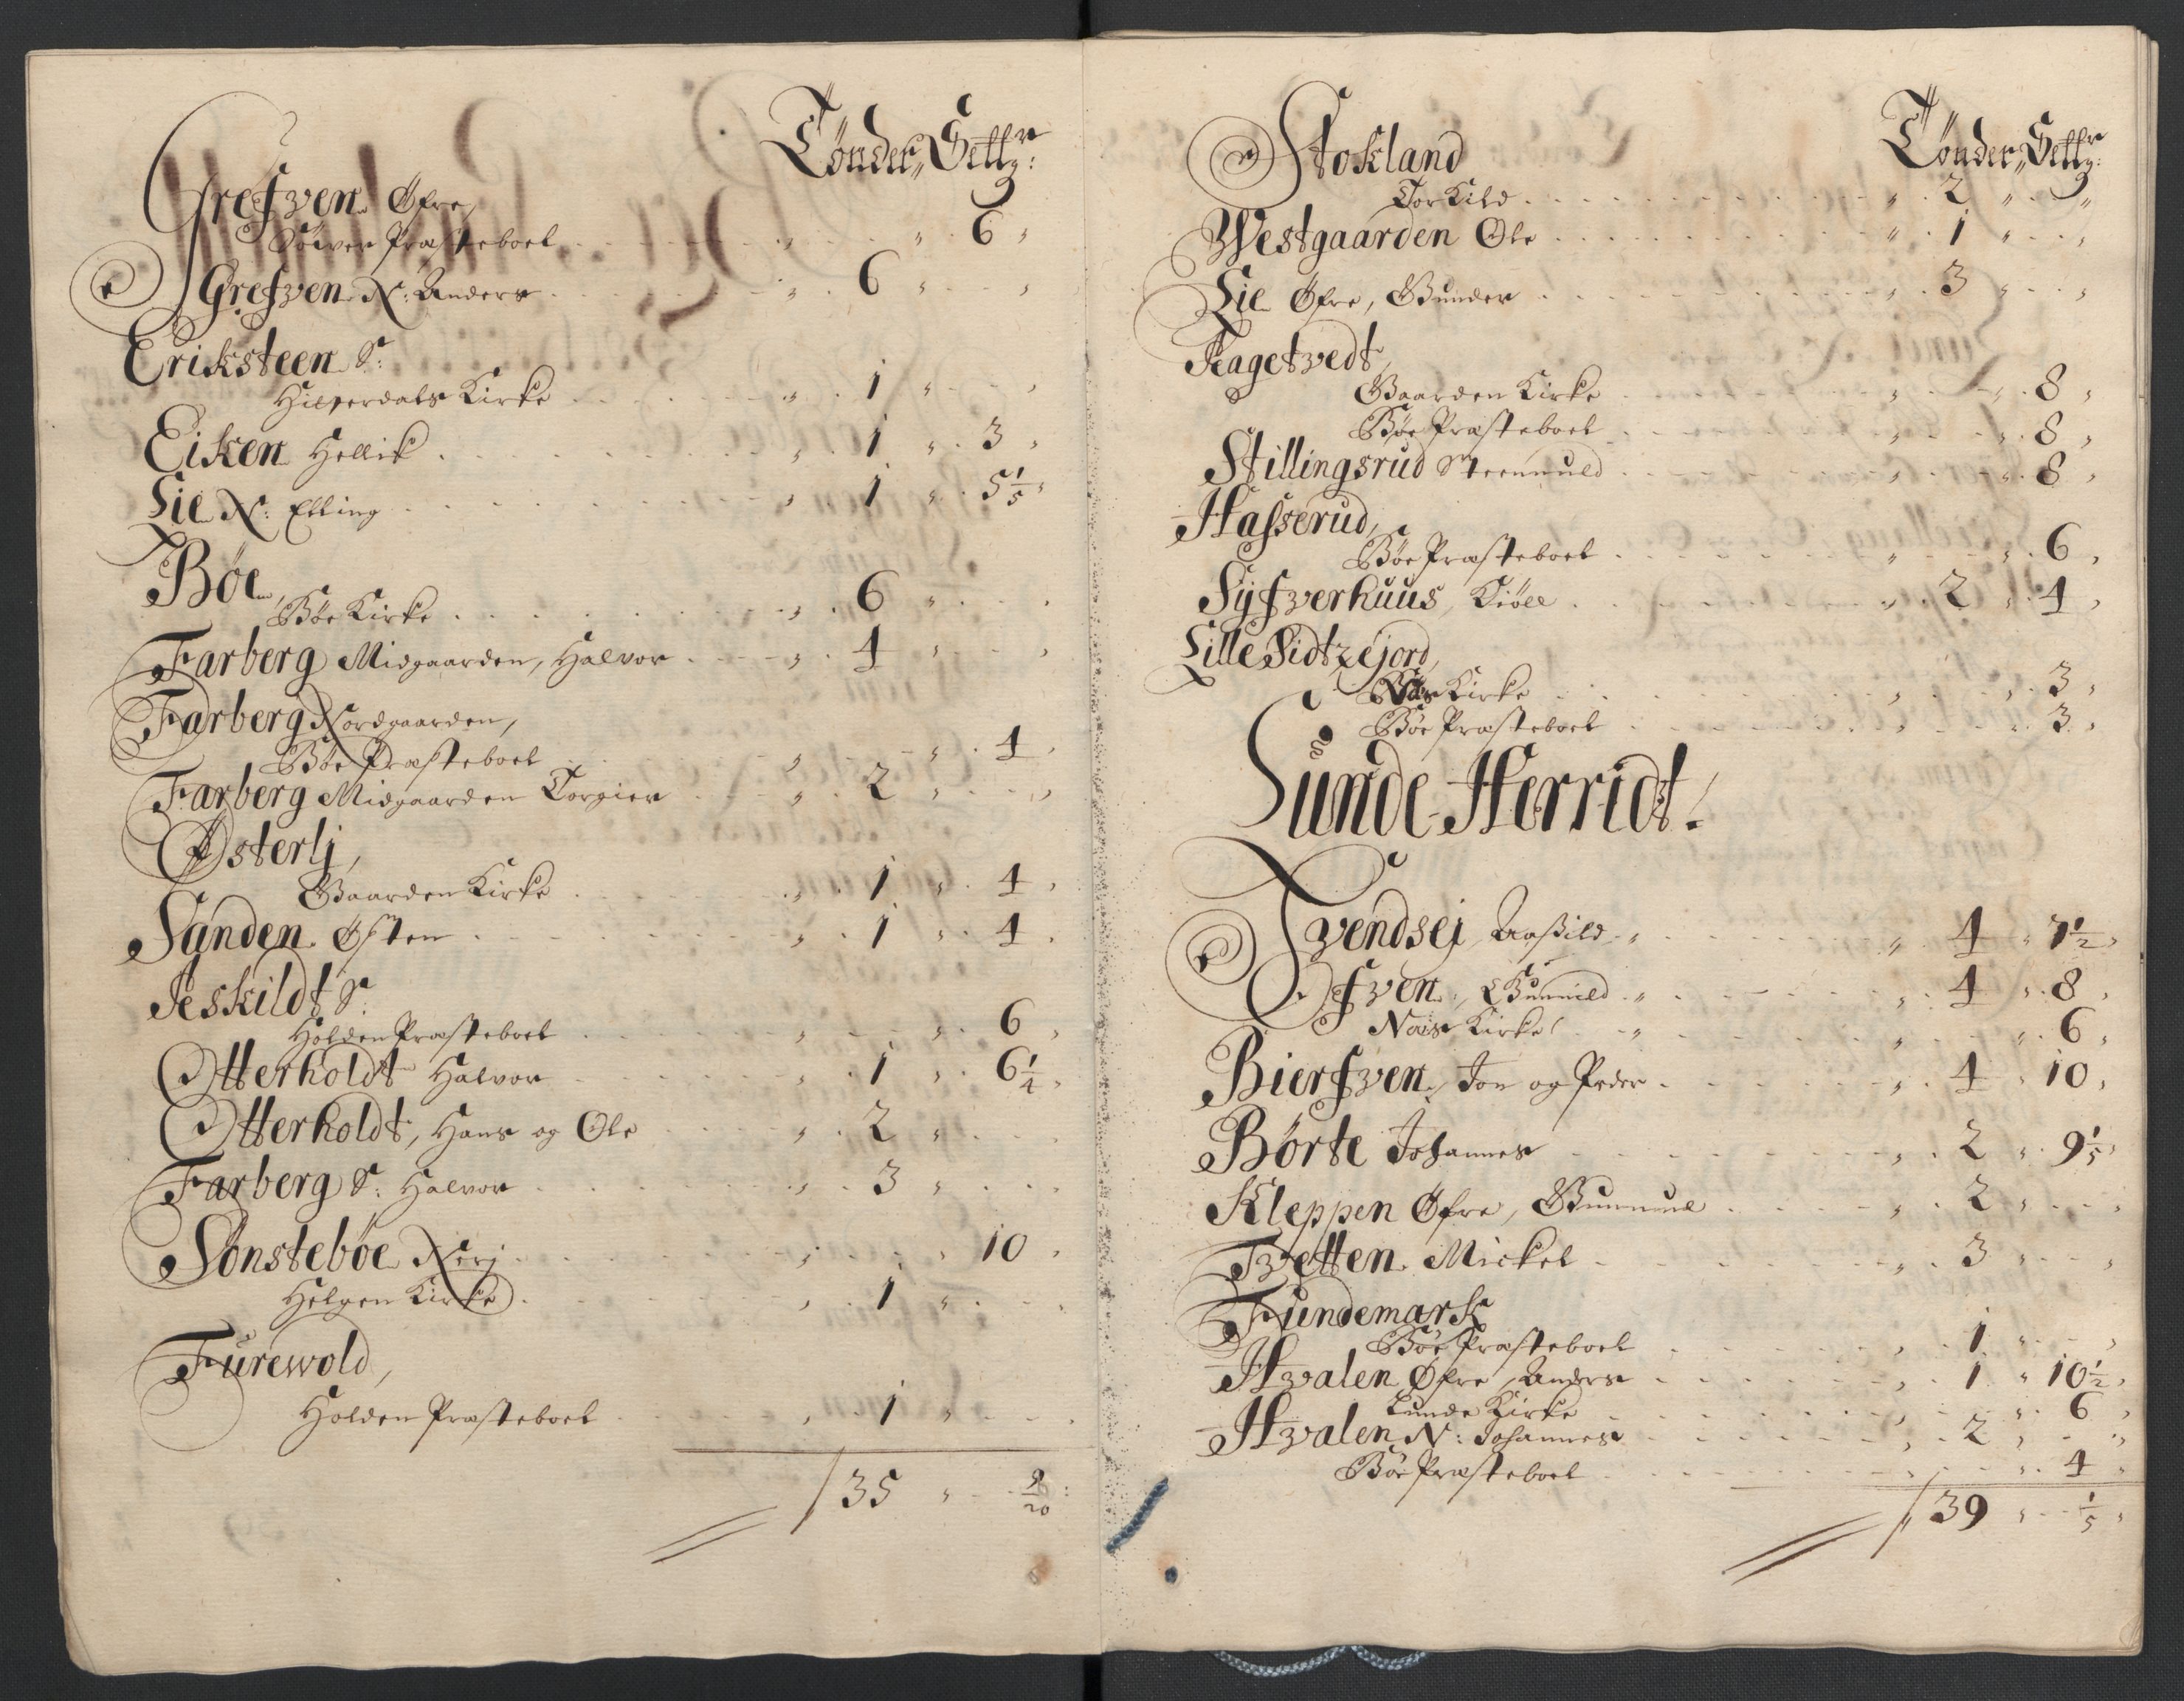 Tønder, Settr:
Grefven Øfre,
Præsteboel 6
Grefven N: Anders 6
Eriksteen S:
Hitterdals Kirke 1
Eiken Hellik 1 3
Lie N: Elling 1 5 1/5
Bøe,
Bøe Kirke 6
Farberg Midgaarden, Halvor 4
Farberg Nordgaarden,
Bøe Præsteboel 4
Farberg Midgaarden Torgier 2
Østerlj,
Gaarden Kirke 1 4
Sanden Østen 1 4
Jeskildt S:
Holden Præsteboel 6
Otterholdt Halvor 1 6 1/4
Otterholdt, Hans og Ole 2
Farberg S: Halvor 3
Sønstebøe Neri 10
Helgen Kirke 1
Furewold,
Holden Præsteboel 1
35 9/20
Tønder, Settr:
Stokland
Torkild 2
Westgaarden Ole 1
Lie Øfre, Gunder 3
Hagetvedt,
Gaarden Kirke 8
Bøe Præsteboel 8
Stillingsrud Steenuld 8
Hasserud,
Bøe Præsteboel 6
Syfverhuus, Kiøll 2 4
Lille Sidtzejord,
Kirke 3
Bøe Præsteboel 3
Lunde Herridt!
Tvendsej Aasild 4 7 1/2
Efven, Gunnild 4 8
Næs Kirke 6
Bierfven, Jon og Peder 4 10
Børte Johannes 2 9 1/5
Kleppen Øfre, Gunnuld 2
Tvetten Mickel 3
Fundemark
Bøe Præsteboel 1
Hvalen Øfre Anders 1 10 1/2
Lunde Kirke 6
Hvalen N: Johannes 2
Bøe Præsteboel 4
39 1/5